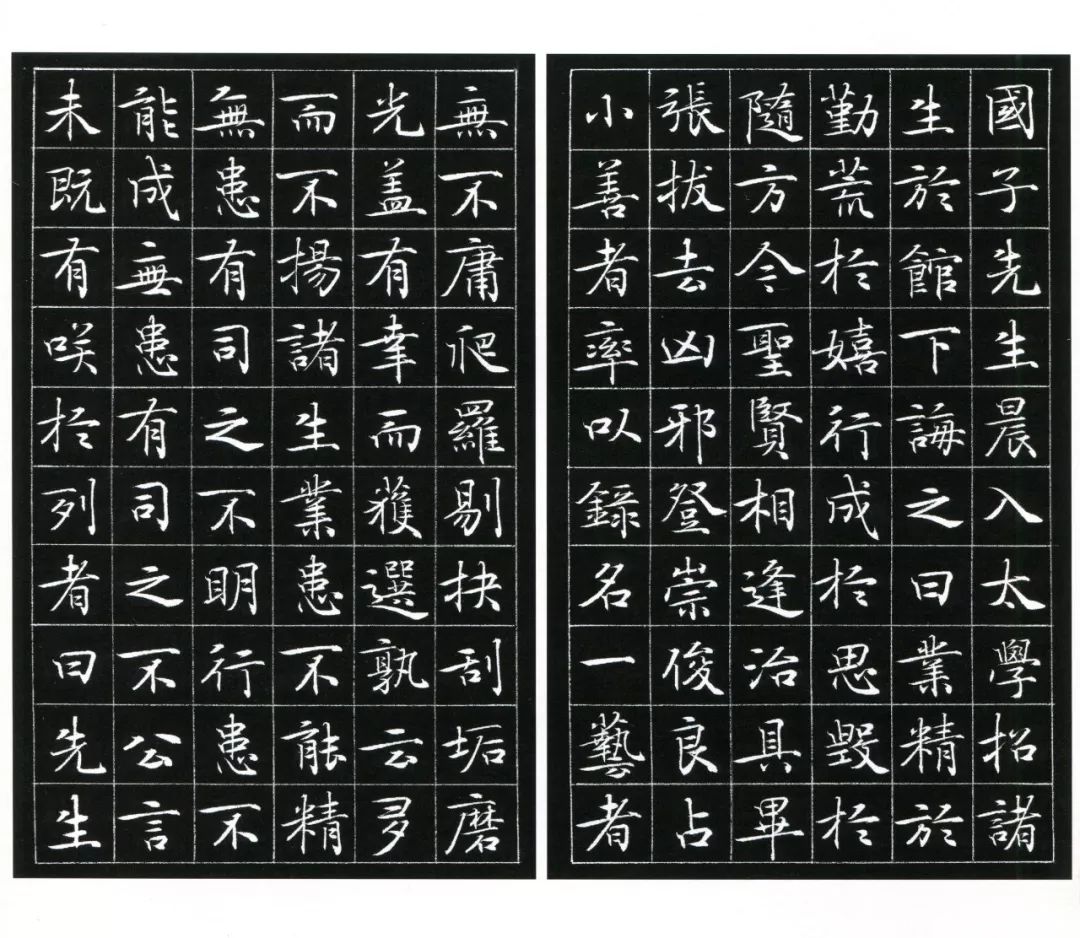 國子先生晨入太學招諸
生於館下誨之曰業精於
勤荒於嬉行成於思毀於
隨方今聖賢相逢治具畢
張拔去凶邪登崇俊良占
小善者率以錄名一藝者
無不庸爬羅剔抉刮垢磨
光盖有幸而獲選孰云多
而不揚諸生業患不能精
無患有司之不明行患不
能成無患有司之不公言
未既有咲於列者曰先生